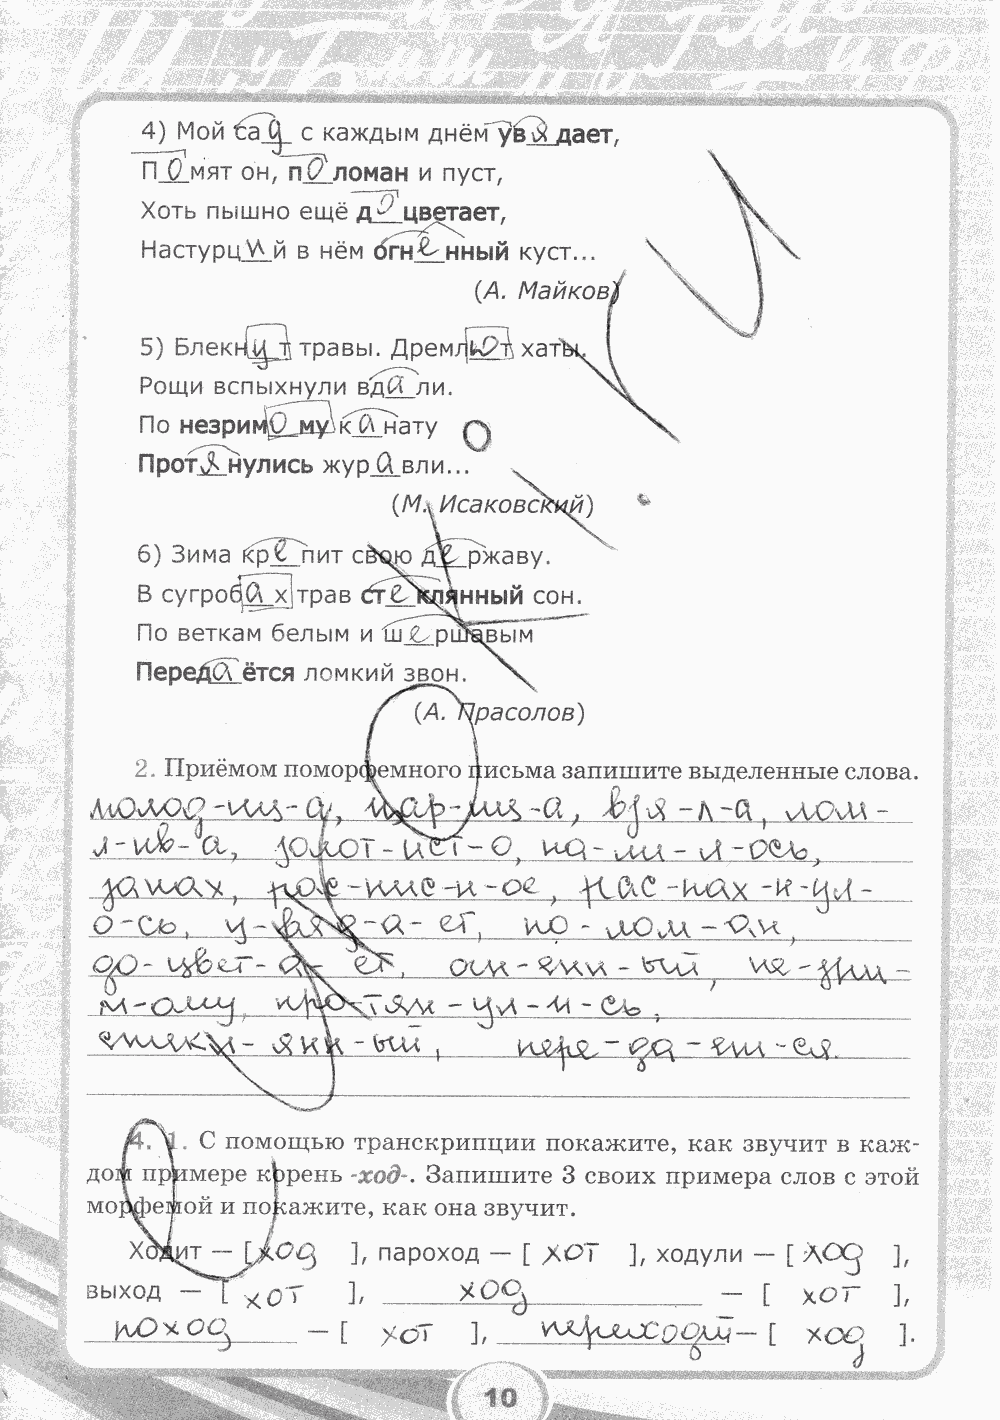 4) Мой сад с каждым днём увядает,
Помят он, поломан и пуст,
Хоть пышно ещё доцветает,
Настурций в нём огненный куст...
(А. Майков)
5) Блекнут травы. Дремлют хаты.
Рощи вспыхнули вдали.
По незримому канату
Протянулись журавли...
(М. Исаковский)
6) Зима крепит свою державу.
В сугробах трав стеклянный сон.
По веткам белым и шершавым
Передаётся ломкий звон.
(А. Прасолов)
2. Приёмом поморфемного письма запишите выделенные слова.
молод-иц-а, цар-иц-а, взя-л-а, лом-
л-ив-а, золот-ист-о, на-ли-л-ось,
запах, рос-пис-н-ое, рас-пах-н-ул-
о-сь, у-вяд-а-ет, по-лом-ан,
до-цвет-а-ет, огн-енн-ый, не-зри-
м-ому, про-тян-ул-и-сь,
стекл-янн-ый, пере-да-ёт-ся.
4. 1. С помощью транскрипции покажите, как звучит в каж-
дом примере корень -ход-. Запишите 3 своих примера слов с этой
морфемой и покажите, как она звучит.
Ходит — [ход], пароход — [хот], ходули — [ход],
выход — [хот], ход — [хот],
поход — [хот], переходит — [ход].
10